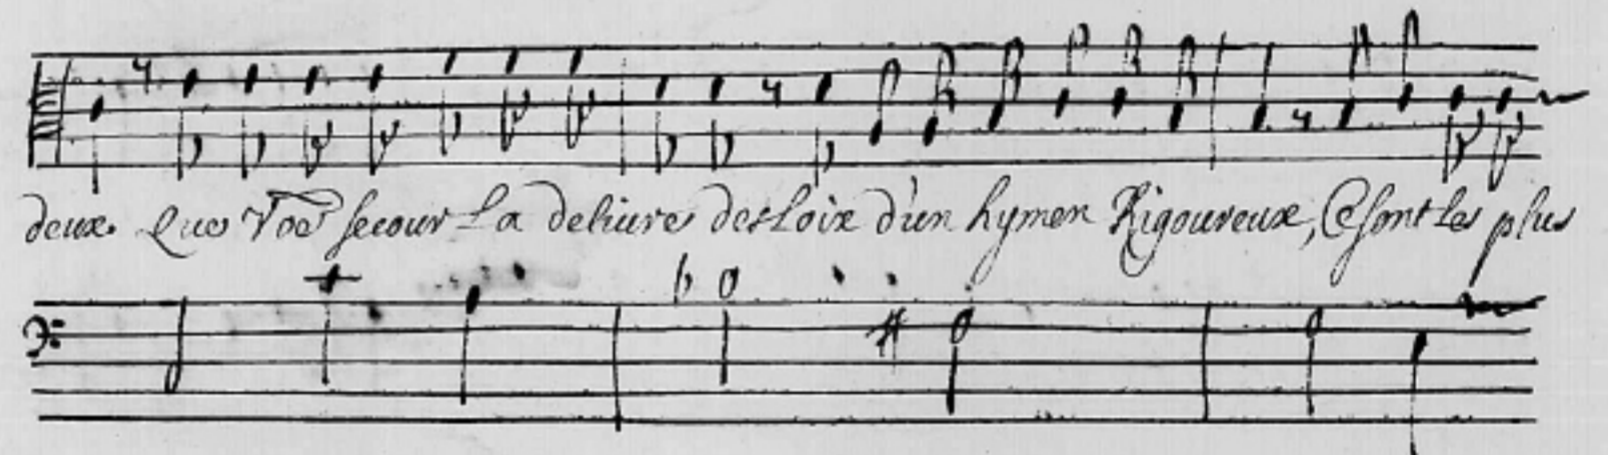 deux. Que Vos secour La deliure des Loix d'un hymen Rigoureux, Ce sont les plus